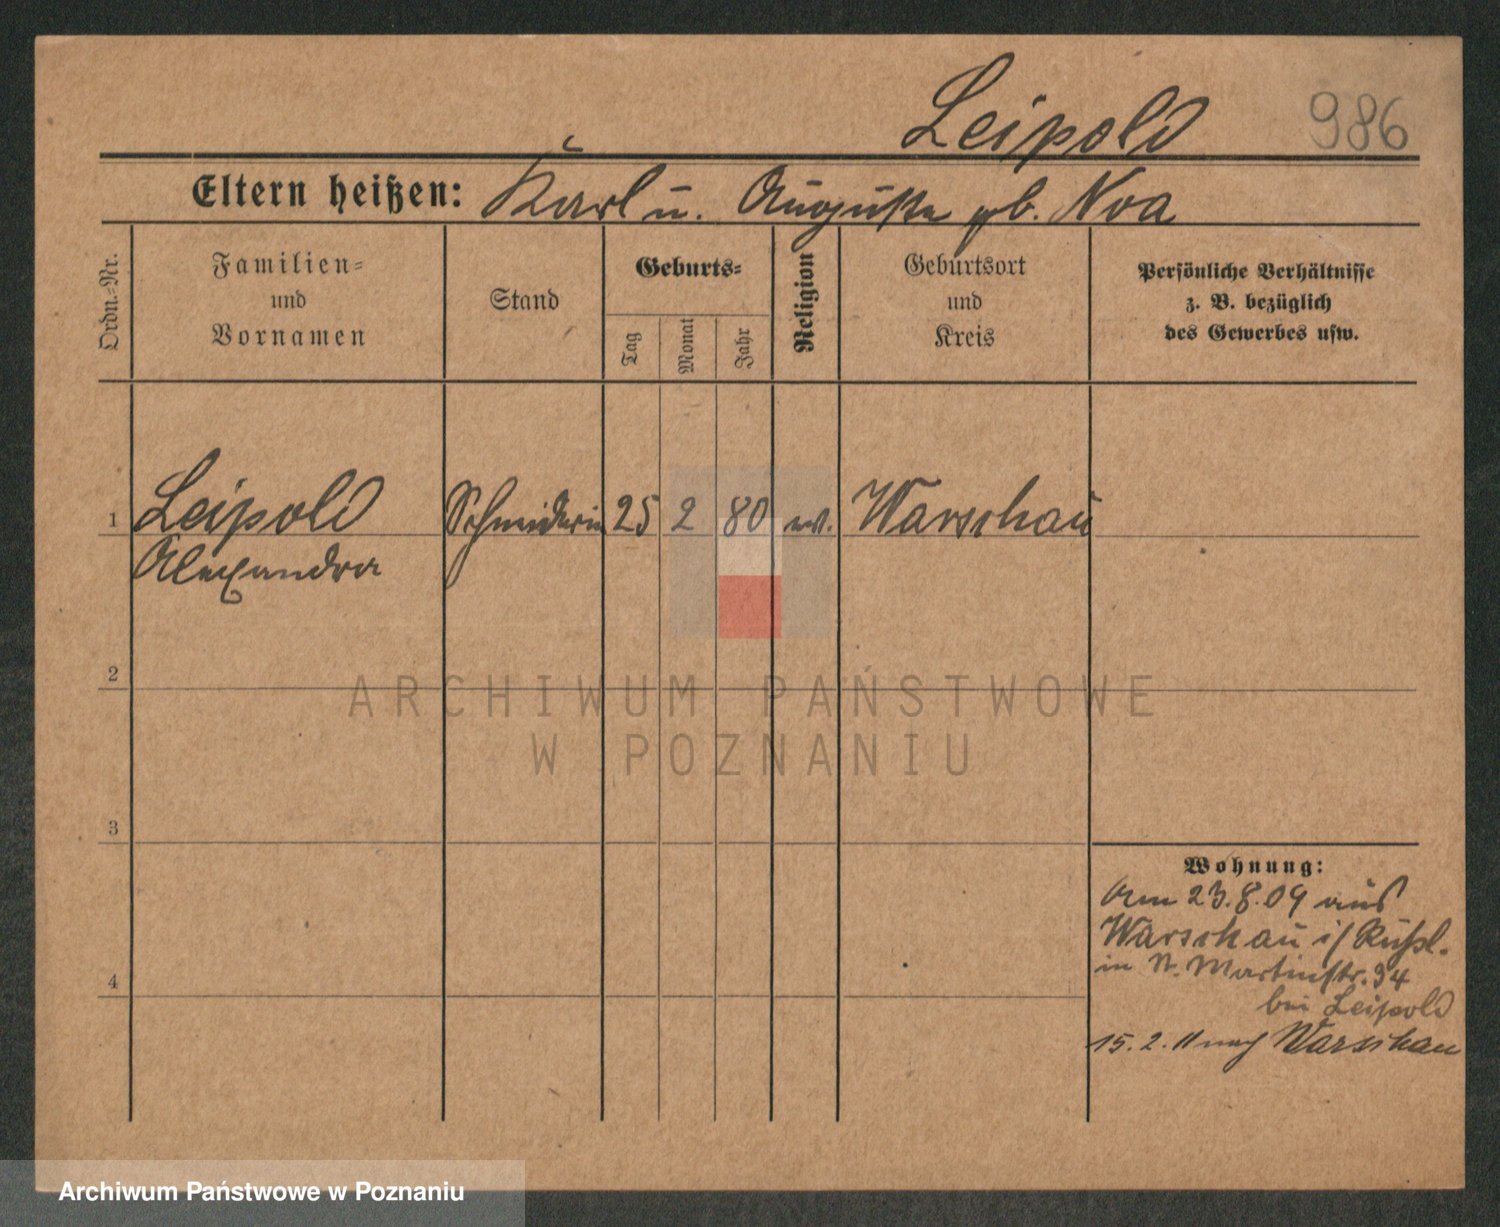 Leipold 986
Eltern heißen: Karl u. Auguste gb. Noa
Ordn.-Nr.
Familien-
und
Vornamen
Stand
Geburts-
Tag
Monat
Jahr
Religion
Geburtsort
und
Kreis
Persönliche Verhältnisse
z. B. bezüglich
des Gewerbes usw.
1 Leipold Schneiderin 25 2 80 ev. Warschau
Alexandra
2
ARCHIWUM PAŃSTWOWE
W POZNANIU
3
Wohnung:
Am 23.8.09 aus
Warschau i/ Rußl.
in St. Martinstr. 34
bei Leipold
4
15.2.11 nach Warschau
Archiwum Państwowe w Poznaniu